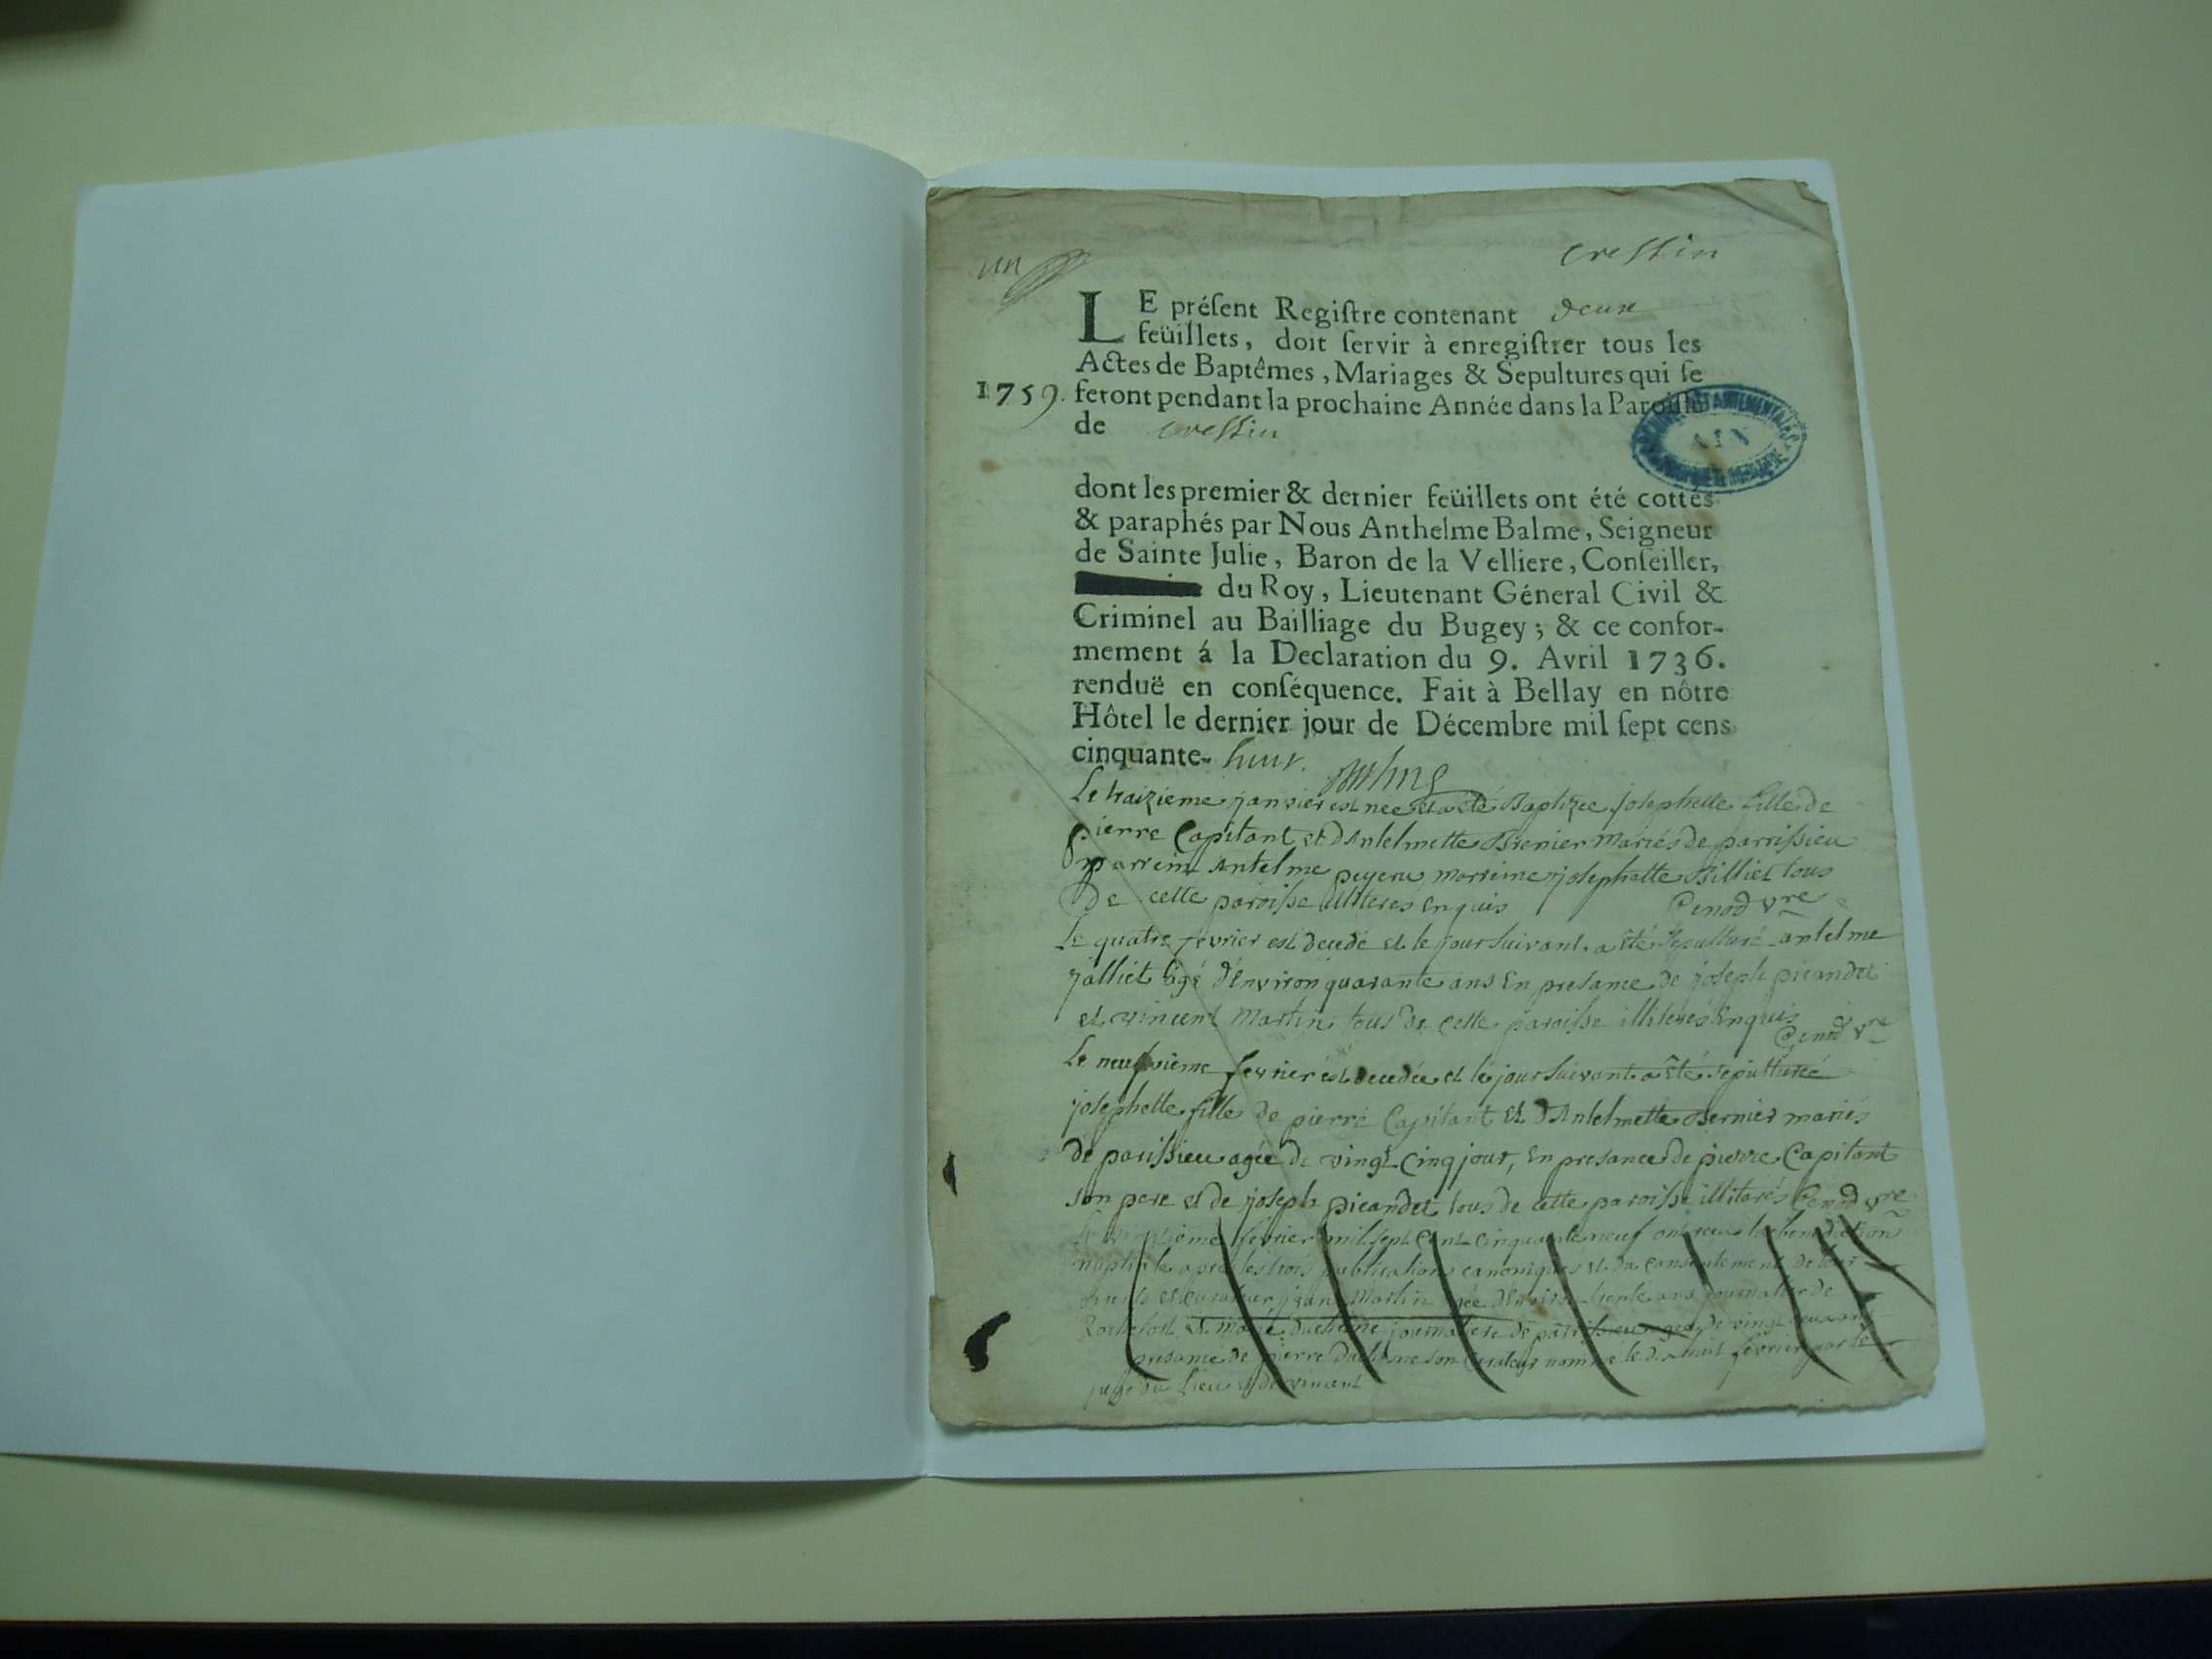 un
Cressin
LE préſent Regiſtre contenant deux
feüillets, doit ſervir à enregiſtrer tous les
Actes de Baptêmes, Mariages & Sepultures qui ſe
1759. feront pendant la prochaine Année dans la Paroiſſe
de Cressin
ARCHIVES DÉPARTEMENTALES
AIN
dont les premier & dernier feüillets ont été cottés
& paraphés par Nous Anthelme Balme, Seigneur
de Sainte Julie, Baron de la Velliere, Conſeiller,
du Roy, Lieutenant Géneral Civil &
Criminel au Bailliage du Bugey; & ce confor-
mement á la Declaration du 9. Avril 1736.
renduë en conſéquence. Fait à Bellay en nôtre
Hôtel le dernier jour de Décembre mil ſept cens
cinquante- huit.
Le traizieme janvier est nee et a eté Baptizee josephette fille de
pierre Capitant et d'Antelmette Brenier mariés de parrissieu
parrein Antelme peyeru marreine josephette Billiet tous
De cette paroisse illiteres enquis Genod vre
Le quatre fevrier est decedé et le jour suivant a eté sepulturé antelme
jalliet agé d'environ quarante ans en presance de joseph picandet
et vincent Martin tous de cette paroisse illiterés enquis Genod vre
Le neufvieme fevrier est decedée et le jour suivant a eté sepulturée
josephette fille de pierre Capitant et d'Antelmette Bernier mariés
de parissieu agée de vingt cinq jour, en presance de pierre Capitant
son pere et de joseph picandet tous de cette paroisse illitarés Genod vre
Le vingtieme fevrier mil sept cent cinquante neuf ont receu la benediction
nuptiale apres les trois publications canoniques et du consentement de leur
jean Martin agé d'environ trente ans journalier de
Rochefort et marie duchene journaliere de parrissieu agée de vingt deux ans
presance de pierre duchene son curateur nommé le dixhuit fevrier par le
juge du Lieu et de vincent